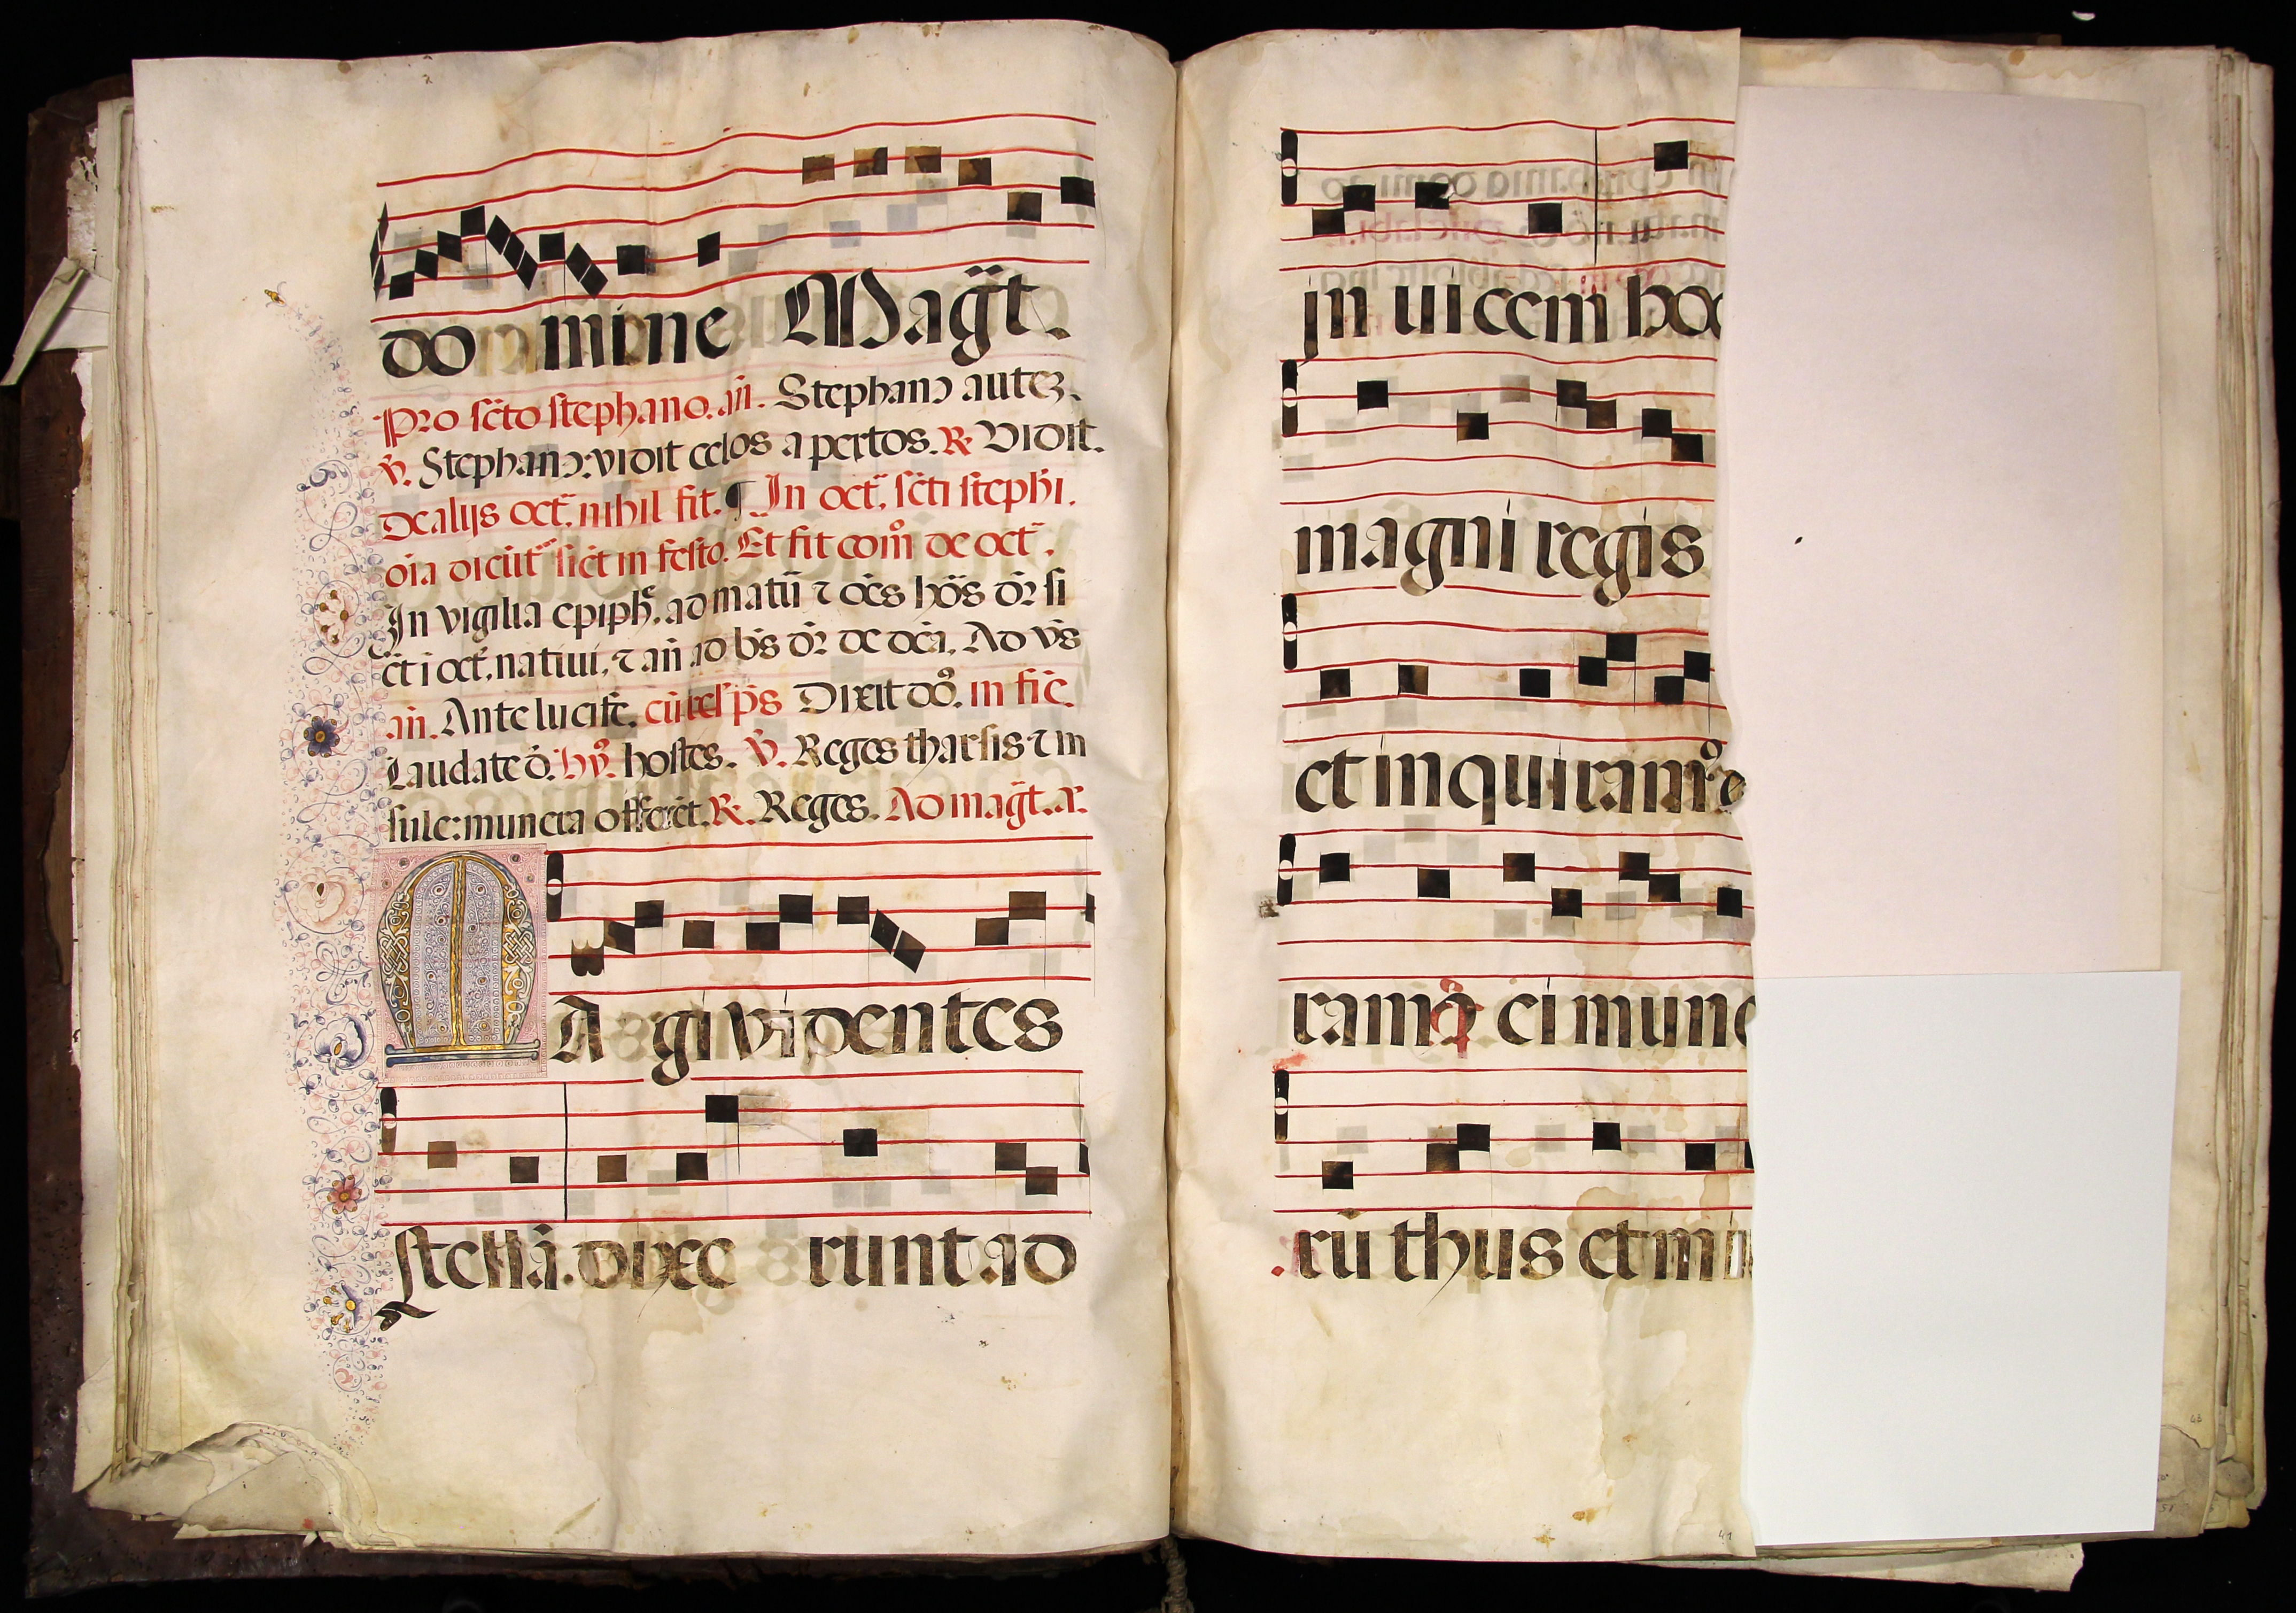 do mine Magt̃.
Pro sc̃to stephano. añ. Stephanꝰ autez.
Ṽ. Stephanꝰ: vidit celos apertos. R. Vidit.
De alijs oct̃. nihil fit. ¶ In oct̃. sc̃ti steph̃i.
oĩa dicũt̃ sic̃t in festo. Et fit com̃o de oct̃.
In vigilia epiph̃e. ad matũ ⁊ oẽs hõs dr̃ si
c̃t ĩ oct̃. natiui. ⁊ añ ad b̃s dr̃ de dc̃a. Ad vs̃
añ. Ante lucife. cũ rel̃ ps̃ Dixit do. in fiẽ
Laudate d̃. hỹ. hostes. Ṽ. Reges tharsis ⁊ in
sule: munera offerẽt. R. Reges. Ad magt̃. a.
MA gi videntes
stellã. dixe runt ad
in uicem hoc
magni regis
et inquiramꝰ
ramꝰ ei mune
rũ thus et mi
41